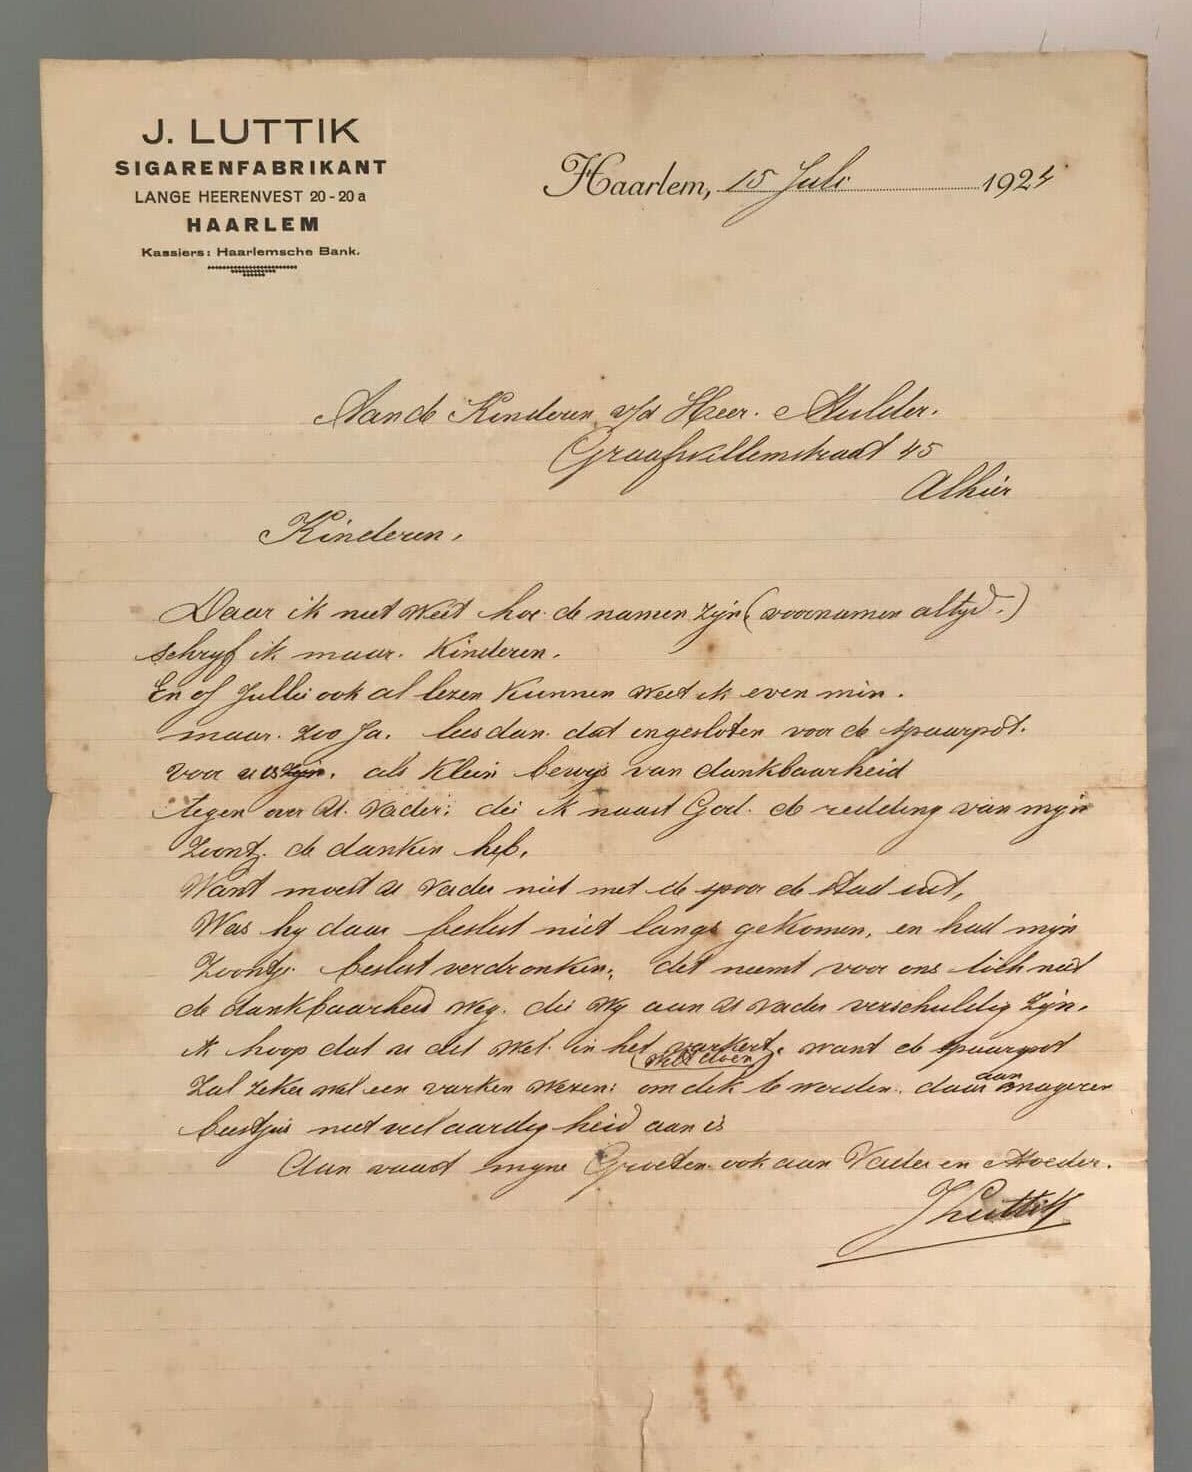 J. LUTTIK
SIGARENFABRIKANT
LANGE HEERENVEST 20-20a
HAARLEM
Kassiers: Haarlemsche Bank.
Haarlem, 15 Juli 1924
Aan de Kinderen v/d Heer. Mulder.
Graafwillemstraat 45
Alhier
Kinderen,
Daar ik niet weet hoe de namen zijn (voornamen altyd.)
schryf ik maar. Kinderen.
En of Jullie ook al lezen kunnen weet ik even min.
maar. Zoo Ja. lees dan. dat ingesloten voor de spaarpot.
voor u is. als klein bewys van dankbaarheid
tegen over U. Vader; die ik naast God. de redding van myn
Zoontj. de danken heb.
Want moest U Vader niet met de spoor de stad uit,
Was hy daar beslist niet langs gekomen, en had mijn
Zoontje beslist verdronken, dit neemt voor ons toch niet
de dankbaarheid weg. die wy aan U Vader verschuldig zijn.
ik hoop dat u dit wel in het varken. want de spaarpot
(wilt doen)
Zal zeker wel een varken wezen: om dik te worden. daar aan mageren
beestjes niet veel aardigheid aan is
Aan vaart myne Groeten ook aan Vader en Moeder.
J Luttik